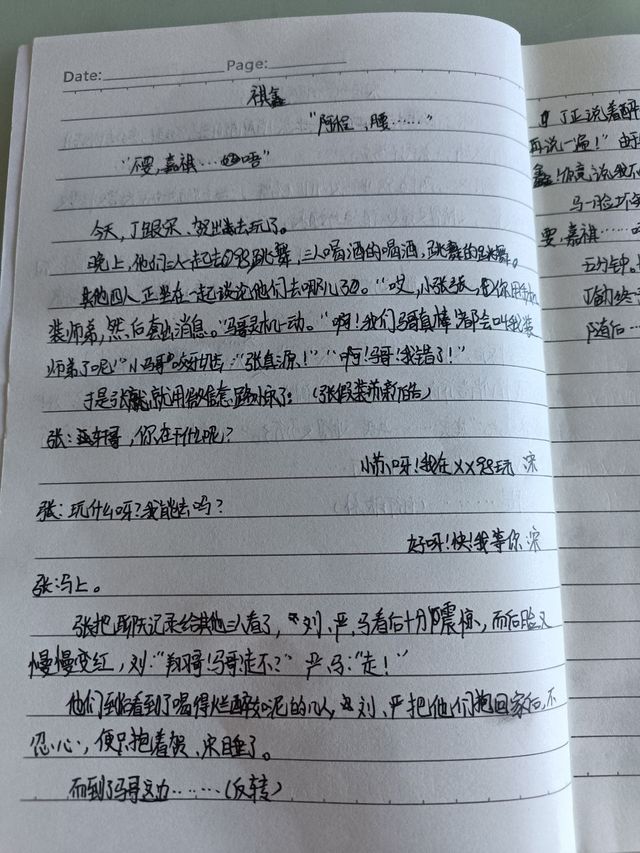 Date: Page:
祺鑫
"阿程，腰……"
"不要，嘉祺…唔"
今天，丁跟宋、贺出去玩了。
晚上，他们三人一起去吧跳舞，三人喝酒的喝酒，跳舞的跳舞。
其他四人正坐在一起谈论他们去哪儿了。"哎，小张张，你用
装师弟，然后套出消息。"马哥灵机一动。"啊！我们马哥真棒 都会叫我装
师弟了呢！"小马哥咬牙切齿："张真源！""啊！马哥！我错了！"
于是张就用微信宋了：（张假装苏新皓）
张：亚轩哥，你在干什么呢？
小苏呀！我在XX吧玩 宋
张：玩什么呀？我能去吗？
好呀！快！我等你 宋
张：马上。
张把聊天记录给其他三人看了，刘、严、马看后十分震惊，而后脸又
慢慢变红，刘："翔哥！马哥！走不？" 严、马："走！"
他们到后看到了喝得烂醉如泥的几人，刘、严把他们抱回家后，不
忍心，便只抱着贺、宋睡了。
而到了马哥这边………（反转）
丁正说着醉
再说一遍！"由于
鑫！你竟说我不
马一脸坏笑
要，嘉祺……
五分钟。
丁
随后……